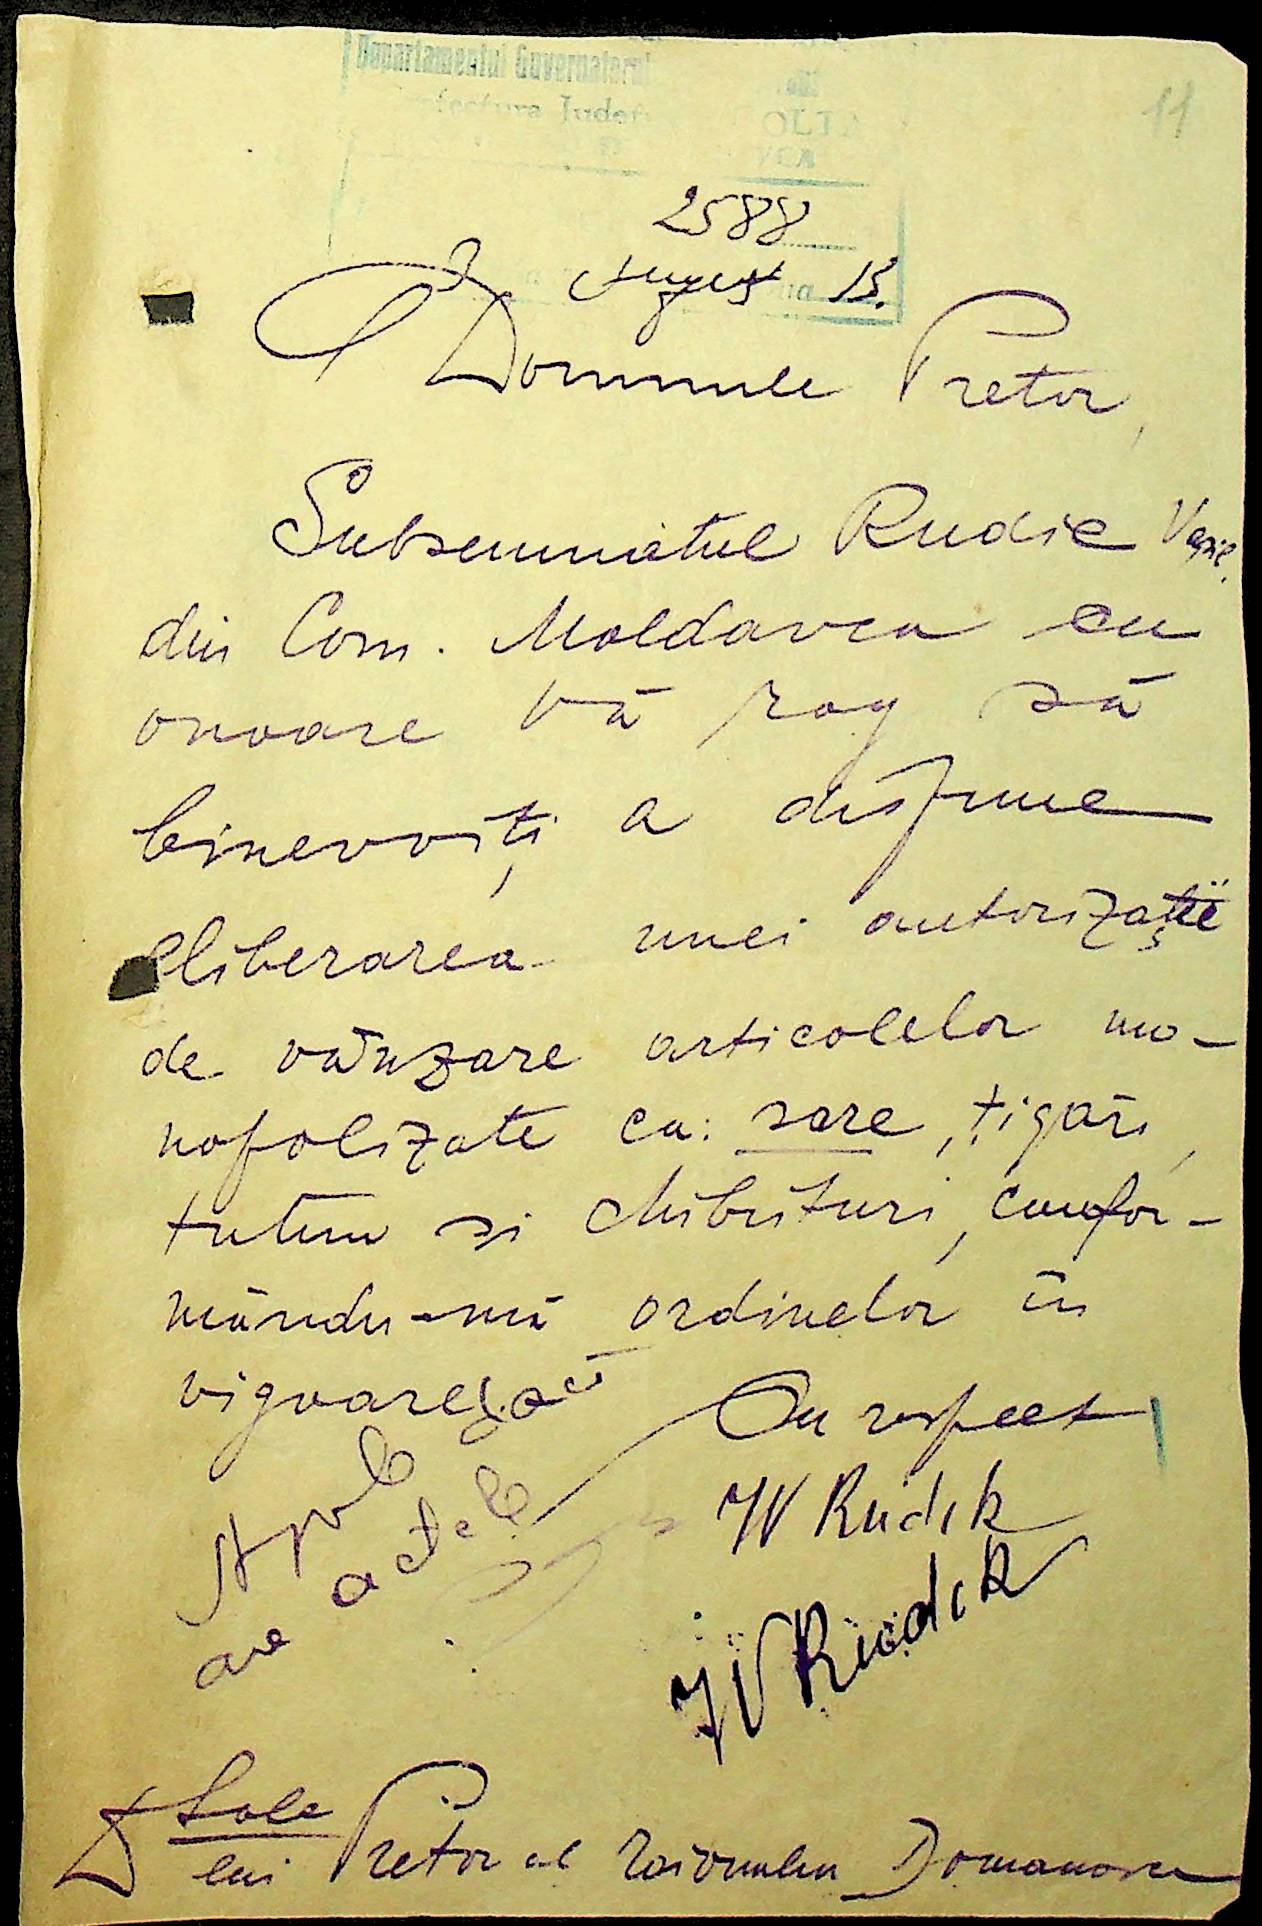 Departamentul Guvernatorul
11
2588
August 13.
Domnule Pretor,
Subsemnatul Rudic Vasile
din Com. Moldavca cu
onoare vă rog să
binevoiți a dispune
eliberarea unei autorizații
de vânzare articolelor mo-
nopolizate ca: sare, țigări,
tutun și chibrituri, confor-
mându-mă ordinelor în
vigoare
Cu respect
are actele
IV Rudik
IV Rudik
D Sale
lui Pretor al raionului Domanovca